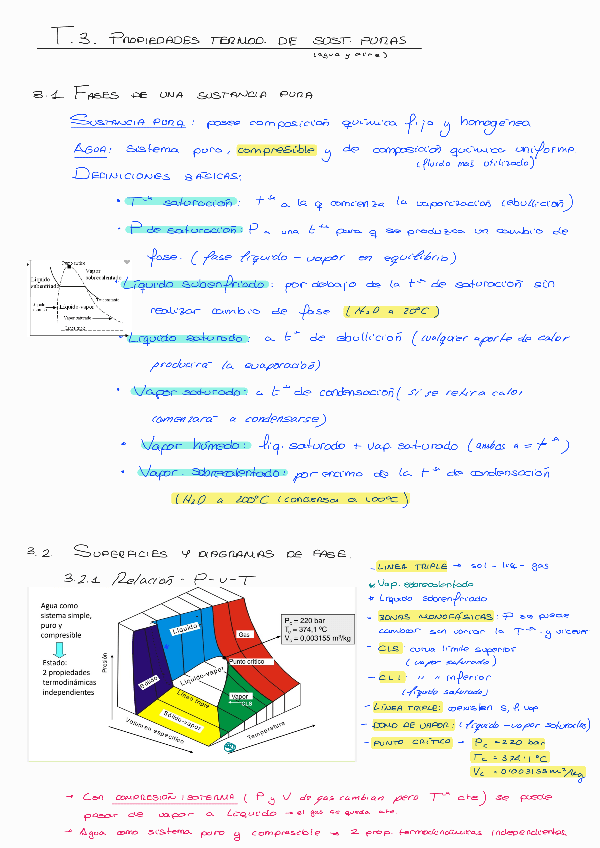 T.3. PROPIEDADES TERMOD. DE SUST. PURAS
(agua y aire)
3.1 FASES DE UNA SUSTANCIA PURA
SUSTANCIA PURA: posee composición química fija y homogénea.
AGUA: sistema puro, compresible y de composición química uniforme
(fluido más utilizado)
DEFINICIONES BÁSICAS:
• Tª saturación: tª a la q comienza la vaporización (ebullición)
• P de saturación: P a una tª para q se produzca un cambio de
fase. (fase líquido - vapor en equilibrio)
• Líquido subenfriado: por debajo de la tª de saturación sin
realizar cambio de fase (H2O a 20ºC)
• Líquido saturado: a tª de ebullición (cualquier aporte de calor
producirá la evaporación)
• Vapor saturado: a tª de condensación (si se retira calor
comenzará a condensarse)
• Vapor húmedo: liq. saturado + vap. saturado (ambos a = tª)
• Vapor. Sobrecalentado: por encima de la tª de condensación
(H2O a 200ºC (condensa a 100ºC)
Líquido
Vapor
sobrecalentado
Líquido-vapor
3.2 SUPERFICIES Y DIAGRAMAS DE FASE.
3.2.1 Relación - P-v-T
Agua como
sistema simple,
puro y
compresible
Estado:
2 propiedades
termodinámicas
independientes
Presión
Sólido
Líquido
Gas
Punto crítico
Líquido-vapor
Línea triple
Vapor
CLS
Sólido-vapor
Volumen específico
Temperatura
Pc = 220 bar
Tc = 374,1 ºC
Vc = 0,003155 m³/kg
- LINEA TRIPLE → sol - liq - gas
* Vap. sobrecalentado
* Liquido sobrenfriado
- ZONAS MONOFÁSICAS: P se puede
cambiar sin variar la Tª y vicever
- CLS: curva límite superior
(vapor saturado)
- CLI: " " inferior
(líquido saturado)
- LINEA TRIPLE: coexisten S, l, vap
- DOMO DE VAPOR: (líquido - vapor saturados)
- PUNTO CRÍTICO → Pc = 220 bar
Tc = 374'1 ºC
Vc = 0'003155 m³/kg
→ Con COMPRESIÓN ISOTERMA (P y V de gas cambian pero Tª cte) se puede
pasar de vapor a líquido → el gas se queda cte.
→ Agua como sistema puro y compresible → 2 prop. termodinámicas independientes